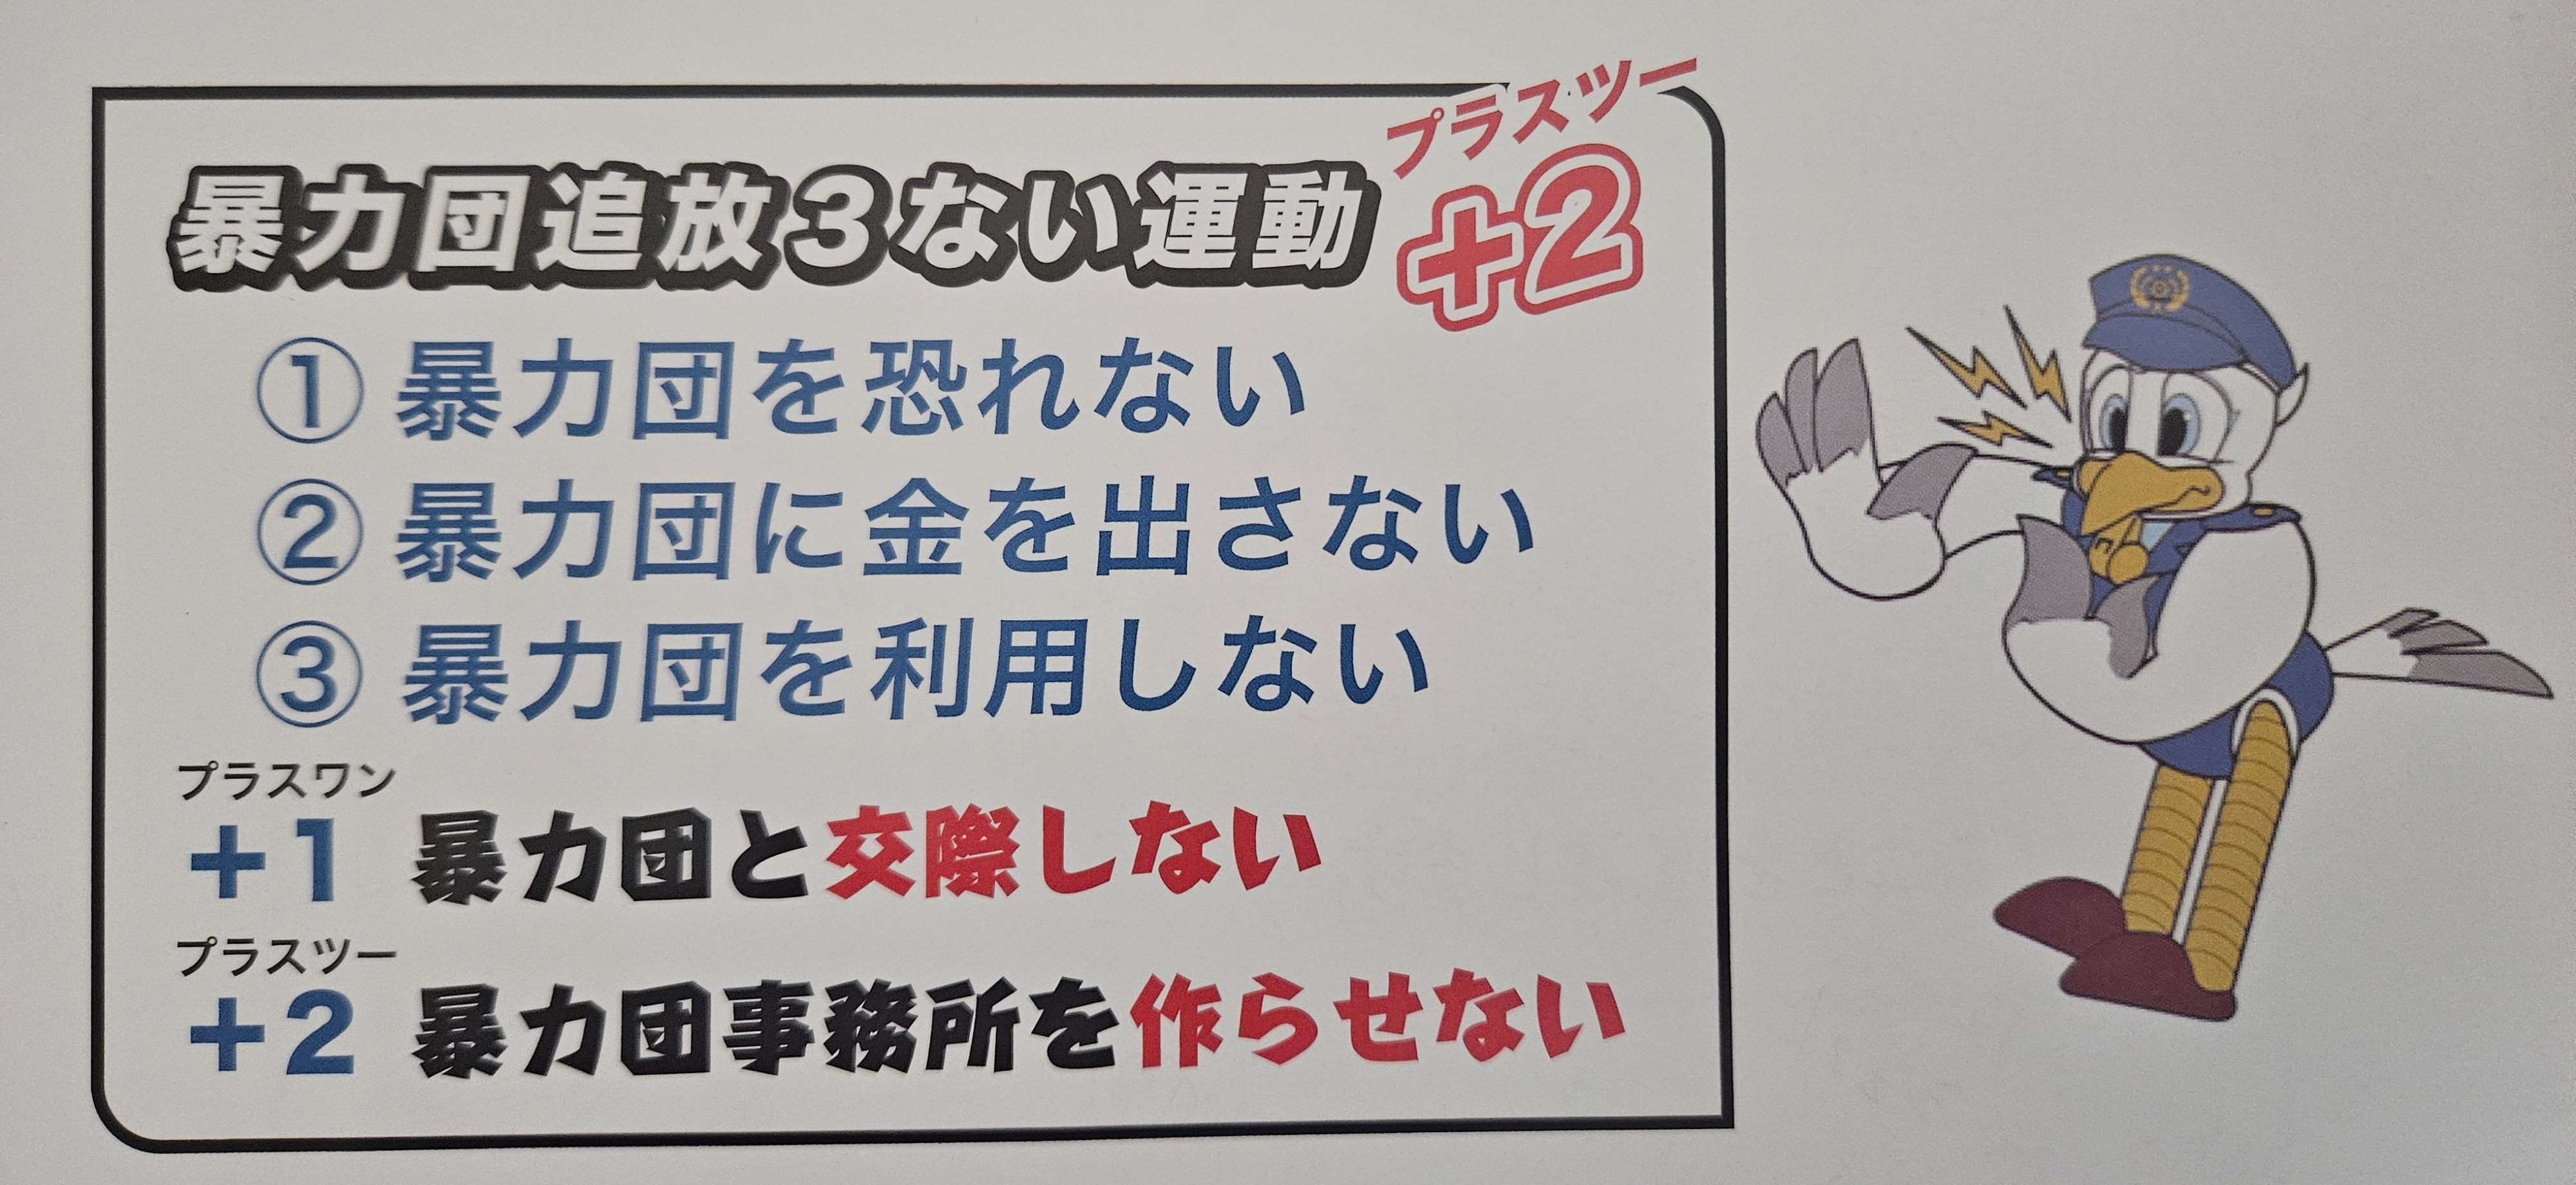 プラスツー
暴力団追放3ない運動 +2
① 暴力団を恐れない
② 暴力団に金を出さない
③ 暴力団を利用しない
プラスワン
+1 暴力団と交際しない
プラスツー
+2 暴力団事務所を作らせない